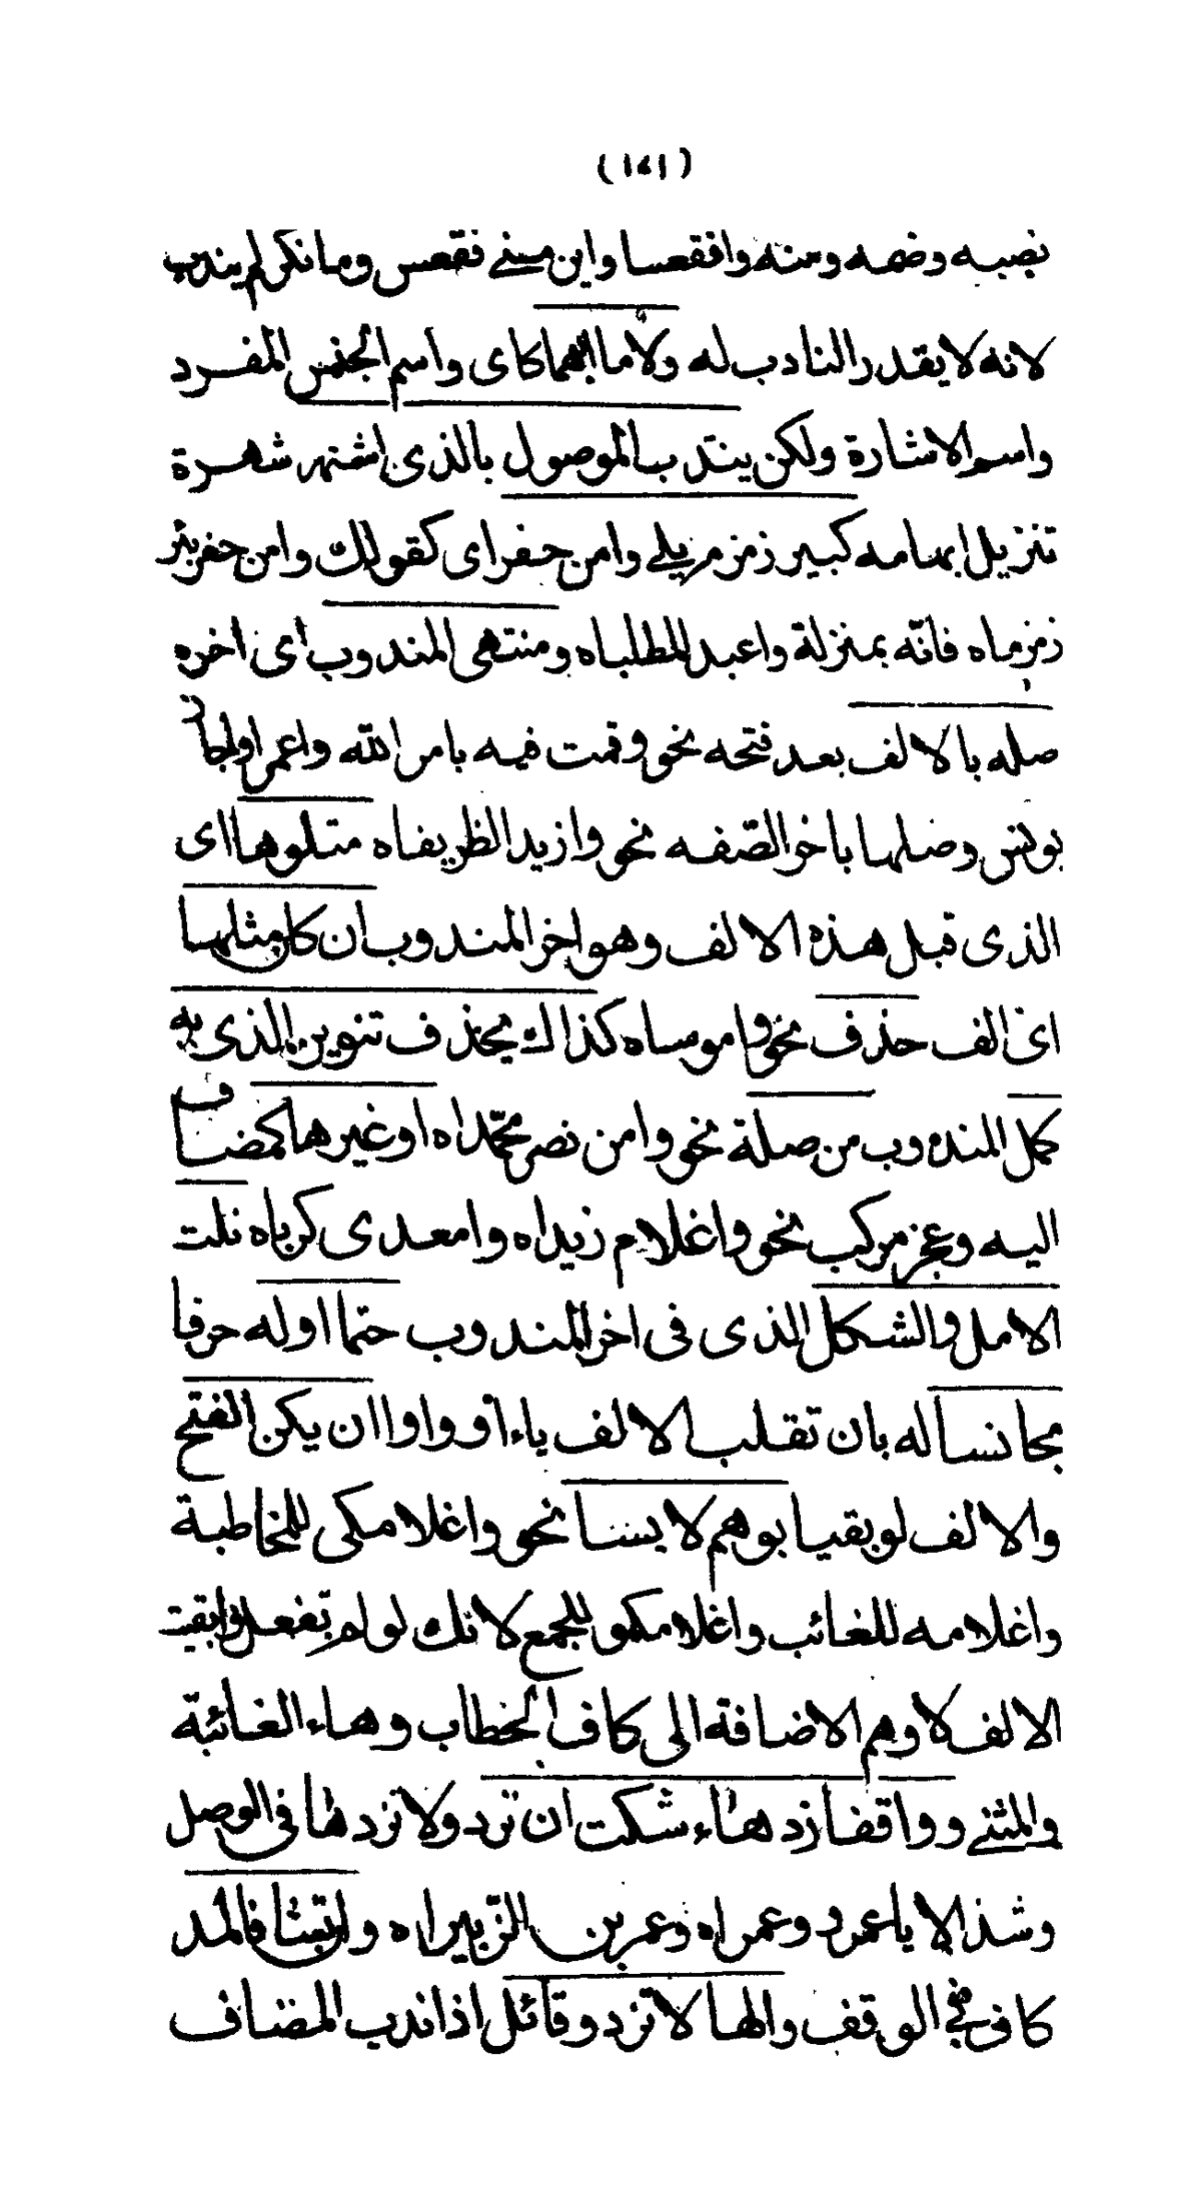 (١٤١)
بنصبه وضمه ومنه وافقعسا واين مني فقعس وما نكر لم يندب
لانه لا يقدر النادب له ولا ما ابهما كاى واسم الجنس المفرد
واسم الاشارة ولكن يندب بالموصول بالذى اشتهر شهرة
تنزيل ابهامه كبير زمزم يلى وامن حفر اى كقولك وامن حفر بئر
زمزماه فانّه بمنزلة واعبد المطلباه ومنتهى المندوب اى اخره
صله بالالف بعد فتحه نحو وقمت فيه بامر اللّه واعمرا واجاز
يونس وصلها باخر الصّفه نحو وازيد الظريفاه متلوها اى
الذى قبل هذه الالف وهو اخر المندوب ان كان مثلها
اى الف حذف نحو وا موساه كذاك يحذف تنوين الذى به
كمل المندوب من صلة نحو وامن نصر محمّداه او غيرها كمضاف
اليه وعجز مركب نحو واغلام زيداه وا معدى كرباه نلت
الامل والشكل الذى فى اخر المندوب حتما اوله حرفا
مجانسا له بان تقلب الالف ياء او واوا ان يكن الفتح
والالف لو بقيا بوهم لابسا نحو واغلامكى للمخاطبة
واغلامه للغائب واغلامكمو للجمع لانك لو لم تفعل وابقيت
الالف لاوهم الاضافة الى كاف الخطاب وهاء الغائبة
والمثنى وواقفا زد هاء سكت ان ترد ولا تزدها فى الوصل
وشذ الا يا عمرو وعمراه وعمرو بن الزّبيراه وان تشا فالمد
كاف فى الوقف والها لا تزد وقائل اذا ندب المضاف